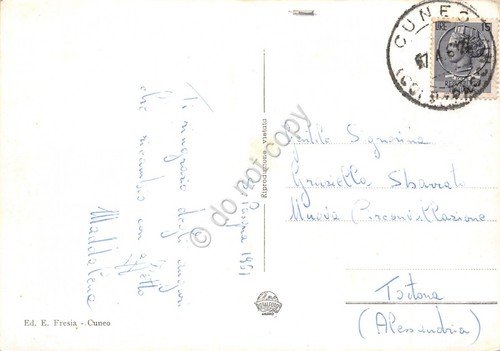 CUNEO
LIRE 15
Ti ringrazio degli auguri
che ricambio con affetto
Maddalena
Pasqua 1961
Riproduzione vietata
Gentile Signorina
Graziella Sbarrato
Nuova Circonvallazione
Tortona
(Alessandria)
Ed. E. Fresia - Cuneo
do not copy